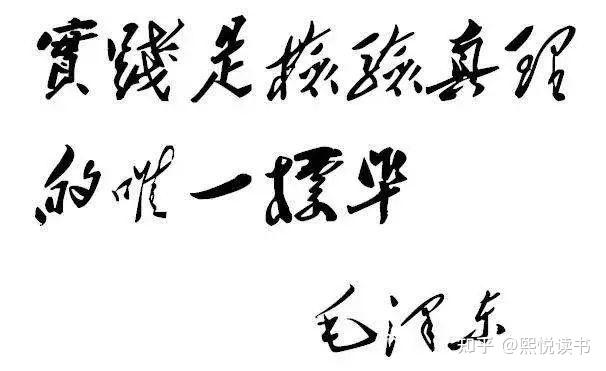 實践是檢驗真理
的唯一標準
毛泽东
知乎 @熙悦读书